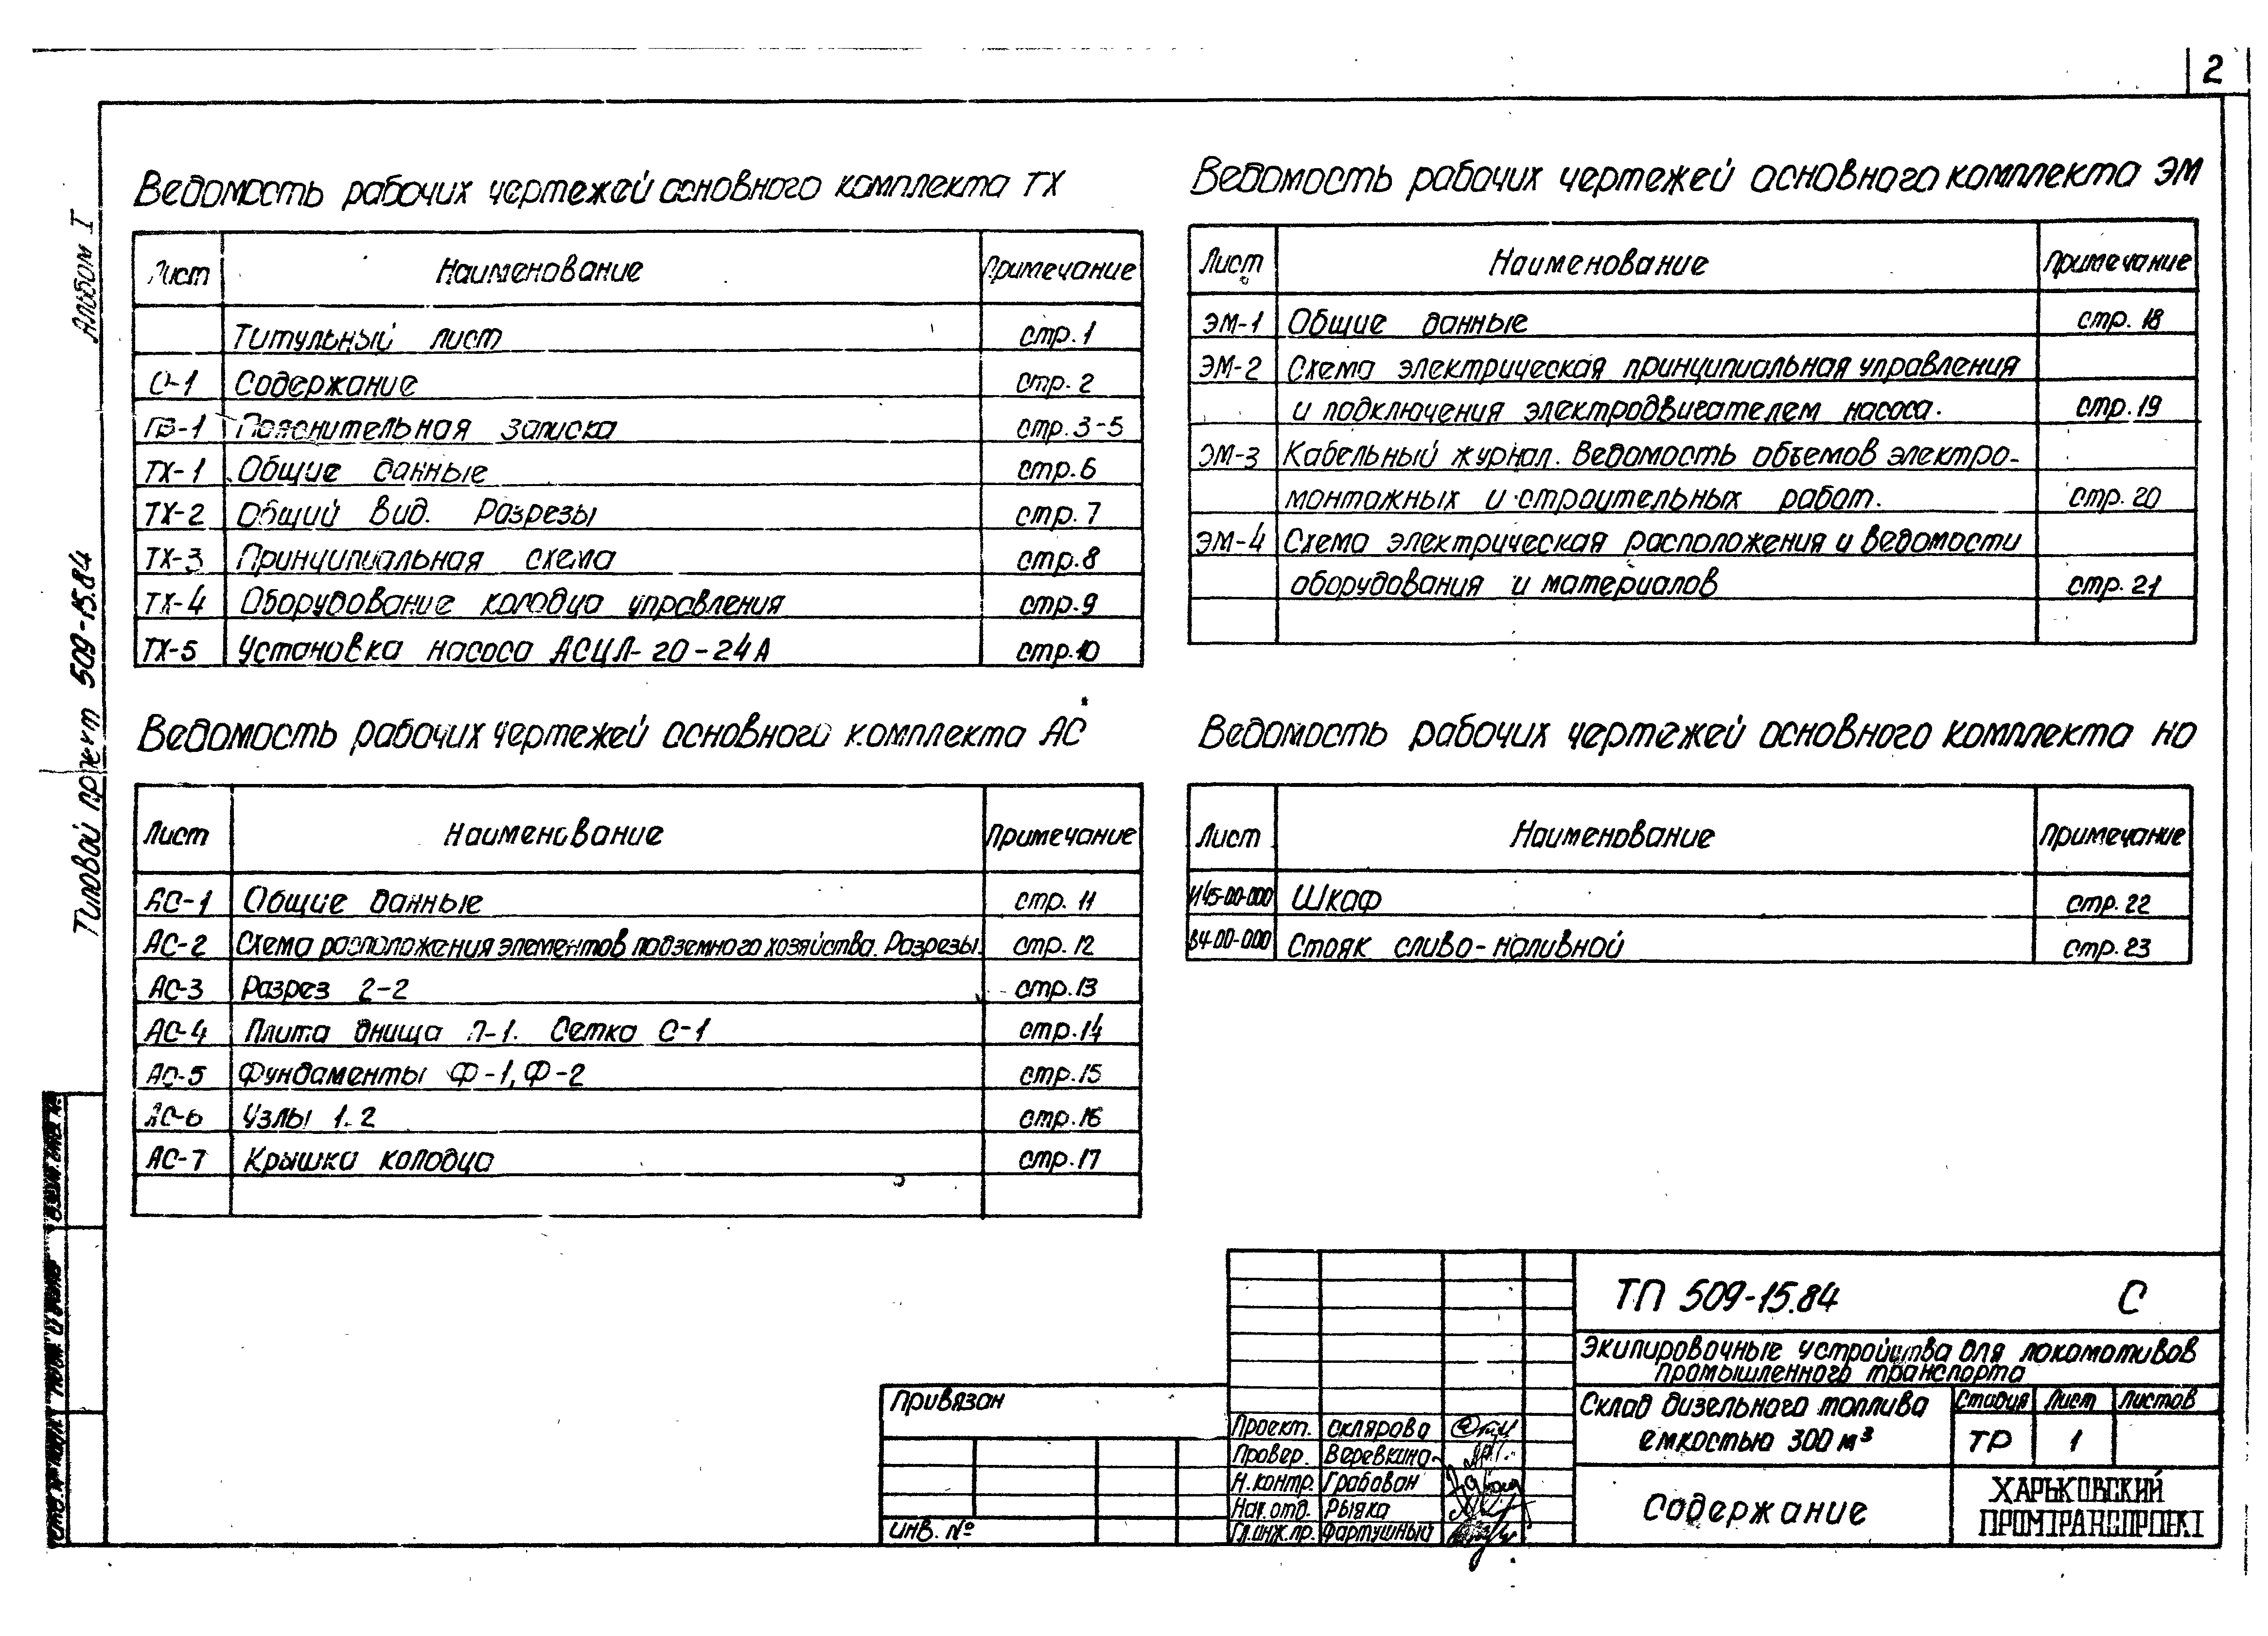 2
Альбом I
Типовой проект 509-15.84
Ведомость рабочих чертежей основного комплекта ТХ
Лист Наименование Примечание
Титульный лист стр. 1
С-1 Содержание стр. 2
ПЗ-1 Пояснительная записка стр. 3-5
ТХ-1 Общие данные стр. 6
ТХ-2 Общий вид. Разрезы стр. 7
ТХ-3 Принципиальная схема стр. 8
ТХ-4 Оборудование колодца управления стр. 9
ТХ-5 Установка насоса АСЦЛ-20-24А стр. 10
Ведомость рабочих чертежей основного комплекта АС
Лист Наименование Примечание
АС-1 Общие данные стр. 11
АС-2 Схема расположения элементов подземного хозяйства. Разрезы. стр. 12
АС-3 Разрез 2-2 стр. 13
АС-4 Плита днища П-1. Сетка С-1 стр. 14
АС-5 Фундаменты Ф-1, Ф-2 стр. 15
АС-6 Узлы 1. 2 стр. 16
АС-7 Крышка колодца стр. 17
Ведомость рабочих чертежей основного комплекта ЭМ
Лист Наименование Примечание
ЭМ-1 Общие данные стр. 18
ЭМ-2 Схема электрическая принципиальная управления
и подключения электродвигателем насоса. стр. 19
ЭМ-3 Кабельный журнал. Ведомость объемов электро-
монтажных и строительных работ. стр. 20
ЭМ-4 Схема электрическая расположения и ведомости
оборудования и материалов стр. 21
Ведомость рабочих чертежей основного комплекта НО
Лист Наименование Примечание
Шкаф стр. 22
Стояк сливо-наливной стр. 23
ТП 509-15.84 С
Экипировочные устройства для локомотивов
промышленного транспорта
Склад дизельного топлива
емкостью 300 м³
Стадия Лист Листов
ТР 1
Содержание
ХАРЬКОВСКИЙ
ПРОМТРАНСПРОЕКТ
Привязан
Инв. №
Проект. Склярова
Провер. Веревкина
Н. контр. Грабован
Нач. отд. Рыяка
Гл. инж. пр. Фартушный